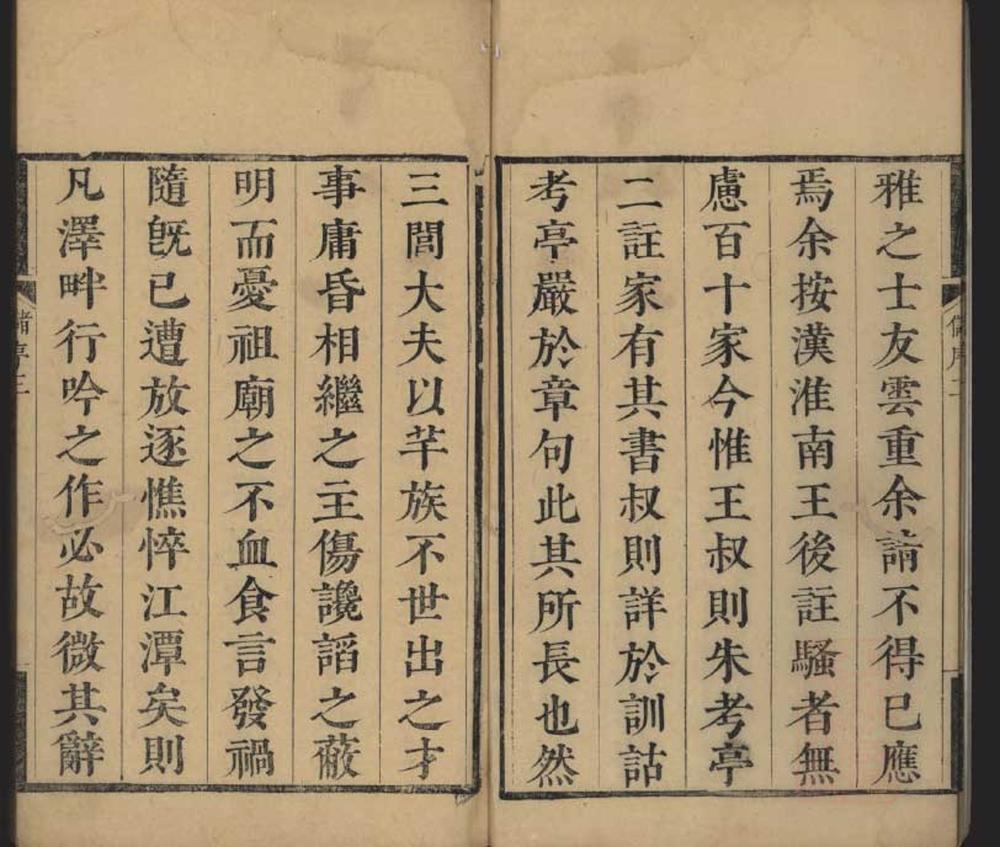 雅之士友雲重余請不得已應
焉余按漢淮南王後註騷者無
慮百十家今惟王叔則朱考亭
二註家有其書叔則詳於訓詁
考亭嚴於章句此其所長也然
三閭大夫以芊族不世出之才
事庸昏相繼之主傷讒謟之蔽
明而憂祖廟之不血食言發禍
隨旣已遭放逐憔悴江潭矣則
凡澤畔行吟之作必故微其辭